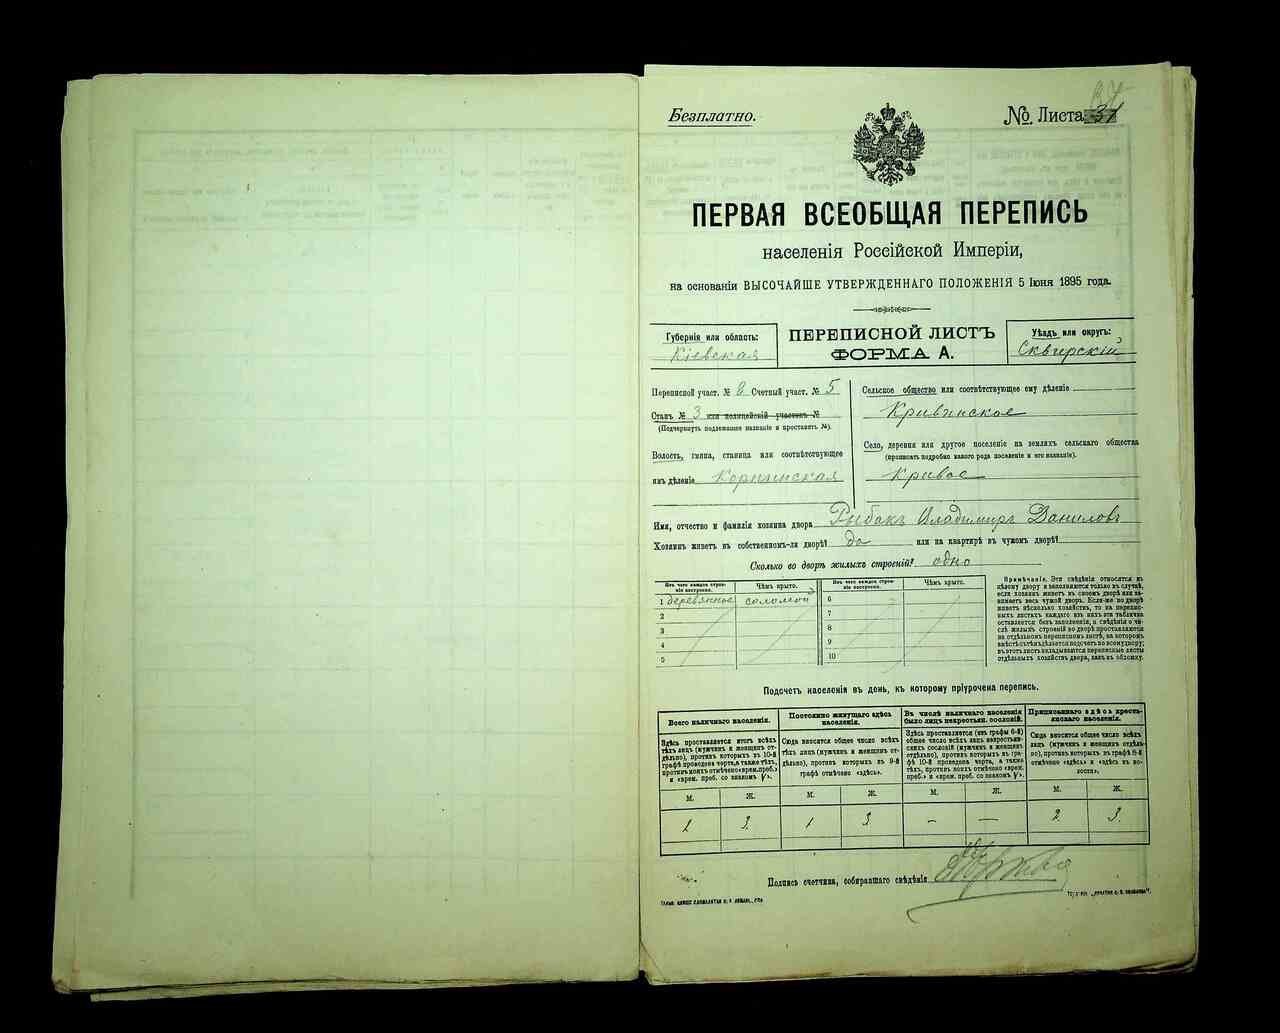 Безплатно.
№ Листа 31
ПЕРВАЯ ВСЕОБЩАЯ ПЕРЕПИСЬ
населенія Россійской Имперіи,
на основаніи ВЫСОЧАЙШЕ УТВЕРЖДЕННАГО ПОЛОЖЕНІЯ 5 Іюня 1895 года.
Губернія или область:
Кіевская
ПЕРЕПИСНОЙ ЛИСТЪ
ФОРМА А.
Уѣздъ или округъ:
Сквирскій
Переписной участ. № 8 Счетный участ. № 5
Станъ № 3 или полицейскій участокъ №
(Подчеркнуть подлежащее названіе и проставить №).
Волость, гмина, станица или соотвѣтствующее
имъ дѣленіе Корнинская
Сельское общество или соотвѣтствующее ему дѣленіе
Кривинское
Село, деревня или другое поселеніе на земляхъ сельскаго общества
(прописать подробно какого рода поселеніе и его названіе).
Кривое
Имя, отчество и фамилія хозяина двора Рыбакъ Владимиръ Даниловъ
Хозяинъ живетъ въ собственномъ-ли дворѣ? да или на квартирѣ въ чужомъ дворѣ?
Сколько во дворѣ жилыхъ строеній? одно
Изъ чего каждое строеніе построено.
Чѣмъ крыто.
Изъ чего каждое строеніе построено.
Чѣмъ крыто.
1 деревянное соломой
2
3
4
5
6
7
8
9
10
Примѣчаніе. Эти свѣдѣнія относятся къ
цѣлому двору и заполняются только въ случаѣ,
если хозяинъ живетъ въ своемъ дворѣ или занимаетъ
весь чужой дворъ. Если-же во дворѣ
живетъ нѣсколько хозяйствъ, то на переписныхъ
листахъ каждаго изъ нихъ эта табличка
оставляется безъ заполненія, а свѣдѣнія о числѣ
жилыхъ строеній во дворѣ проставляются
на отдѣльномъ переписномъ листѣ, на которомъ
вмѣстѣ съ тѣмъ дѣлается подсчетъ по всему двору;
въ этотъ листъ вкладываются переписные листы
отдѣльныхъ хозяйствъ двора, какъ въ обложку.
Подсчетъ населенія въ день, къ которому пріурочена перепись.
Всего наличнаго населенія.
Здѣсь проставляется итогъ всѣхъ
тѣхъ лицъ (мужчинъ и женщинъ отдѣльно),
противъ которыхъ въ 10-й
графѣ проведена черта, а также тѣхъ,
противъ коихъ отмѣчено «врем. преб.»
и «врем. преб. со знакомъ V».
Постоянно живущаго здѣсь
населенія.
Сюда вносится общее число всѣхъ
тѣхъ лицъ (мужчинъ и женщинъ отдѣльно),
противъ которыхъ въ 9-й
графѣ отмѣчено «здѣсь».
Въ числѣ наличнаго населенія
было лицъ некрестьян. сословій.
Здѣсь проставляется (изъ графы 6-й)
общее число всѣхъ лицъ некрестьянскихъ
сословій (мужчинъ и женщинъ
отдѣльно), противъ которыхъ въ графѣ
10-й проведена черта, а также
тѣхъ, противъ коихъ отмѣчено «врем.
преб.» и «врем. преб. со знакомъ V».
Приписаннаго здѣсь крестьянскаго
населенія.
Сюда вносится общее число всѣхъ
лицъ (мужчинъ и женщинъ отдѣльно),
противъ которыхъ въ графѣ 8-й
отмѣчено «здѣсь» и «здѣсь въ волости».
М. Ж. М. Ж. М. Ж. М. Ж.
1 3 1 3 — — 2 3
Подпись счетчика, собиравшаго свѣдѣнія